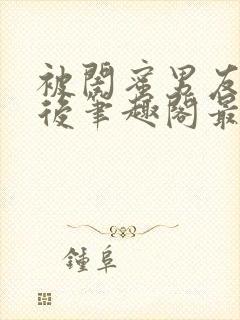 被閨蜜男友
後筆趣閣最
鍾阜